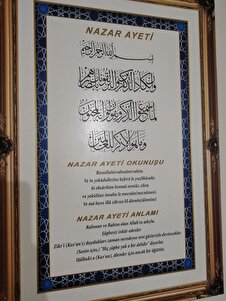 NAZAR AYETİ
بسم الله الرحمن الرحيم
وإن يكاد الذين كفروا ليزلقونك بأبصارهم
لما سمعوا الذكر ويقولون إنه لمجنون
وما هو إلا ذكر للعالمين
NAZAR AYETİ OKUNUŞU
Bismillahirrahmânirrahîm.
Ve in yekâdüllezîne keferû le yuzlikûneke
bi ebsârihim lemmâ semiûz zikra
ve yekûlûne innehu le mecnûn
Ve mâ huve illâ zikrun lil âlemîn
NAZAR AYETİ ANLAMI
Rahman ve Rahim olan Allah'ın adıyla.
Şüphesiz inkar edenler
Zikr'i (Kur'an'ı) duydukları zaman neredeyse seni gözleriyle devireceklerdi.
(Senin için,) "Hiç şüphe yok o bir delidir" diyorlar.
Hâlbuki o (Kur'an), âlemler için ancak bir öğüttür.